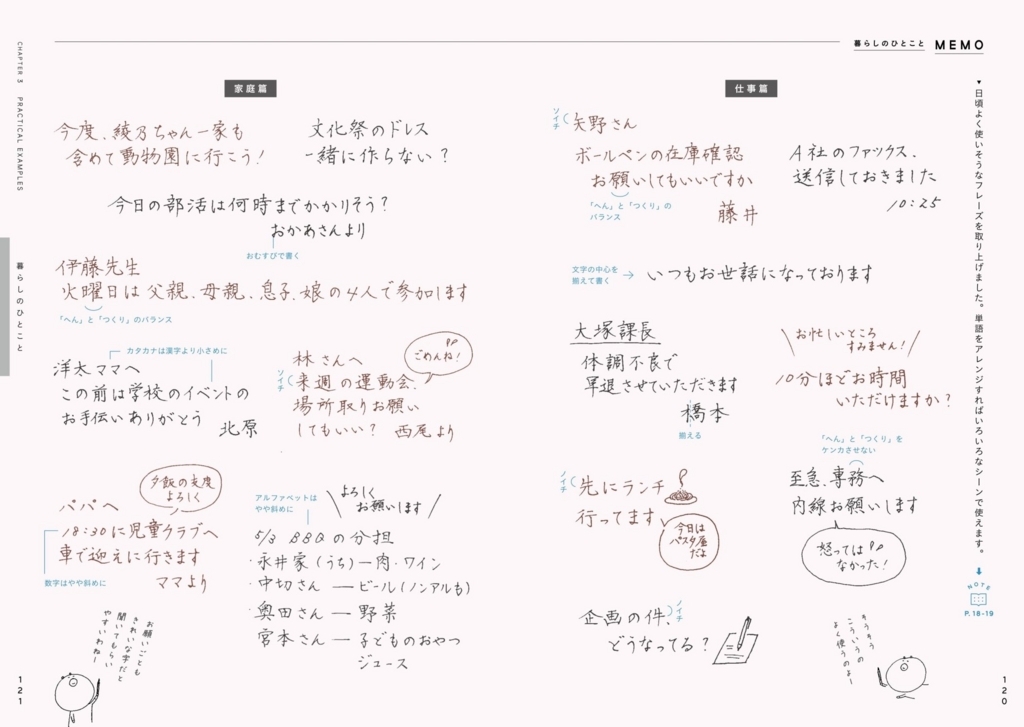 暮らしのひとこと
MEMO
▼日頃よく使いそうなフレーズを取り上げました。単語をアレンジすればいろいろなシーンで使えます。
NOTE
P.18-19
仕事篇
ソイチ
矢野さん
ボールペンの在庫確認
お願いしてもいいですか
「へん」と「つくり」の
バランス
藤井
A社のファックス、
送信しておきました
10:25
文字の中心を
揃えて書く
いつもお世話になっております
大塚課長
体調不良で
早退させていただきます
橋本
揃える
お忙しいところ
すみません!
10分ほどお時間
いただけますか?
ノイチ
先にランチ
行ってます
今日は
パスタ屋
だよ
「へん」と「つくり」を
ケンカさせない
至急、専務へ
内線お願いします
怒っては
なかった!
企画の件、
ノイチ
どうなってる?
そうそう
こういうの
よく使うのよー
120
家庭篇
今度、綾乃ちゃん一家も
含めて動物園に行こう!
文化祭のドレス
一緒に作らない?
今日の部活は何時までかかりそう?
おかあさんより
おむすびで書く
伊藤先生
火曜日は父親、母親、息子、娘の4人で参加します
「へん」と「つくり」のバランス
カタカナは漢字より小さめに
洋太ママへ
この前は学校のイベントの
お手伝いありがとう
北原
林さんへ
ごめんね!
ソイチ
来週の運動会、
場所取りお願い
してもいい?
西尾より
夕飯の支度
よろしく
パパへ
18:30に児童クラブへ
車で迎えに行きます
ママより
数字はやや斜めに
アルファベットは
やや斜めに
よろしく
お願いします
5/3 BBQの分担
・永井家(うち)―肉・ワイン
・中切さん ― ビール(ノンアルも)
・奥田さん ― 野菜
・宮本さん ― 子どものおやつ
ジュース
お願いごとも
きれいな字だと
聞いてもらい
やすいわねー
CHAPTER 3 PRACTICAL EXAMPLES
暮らしのひとこと
121